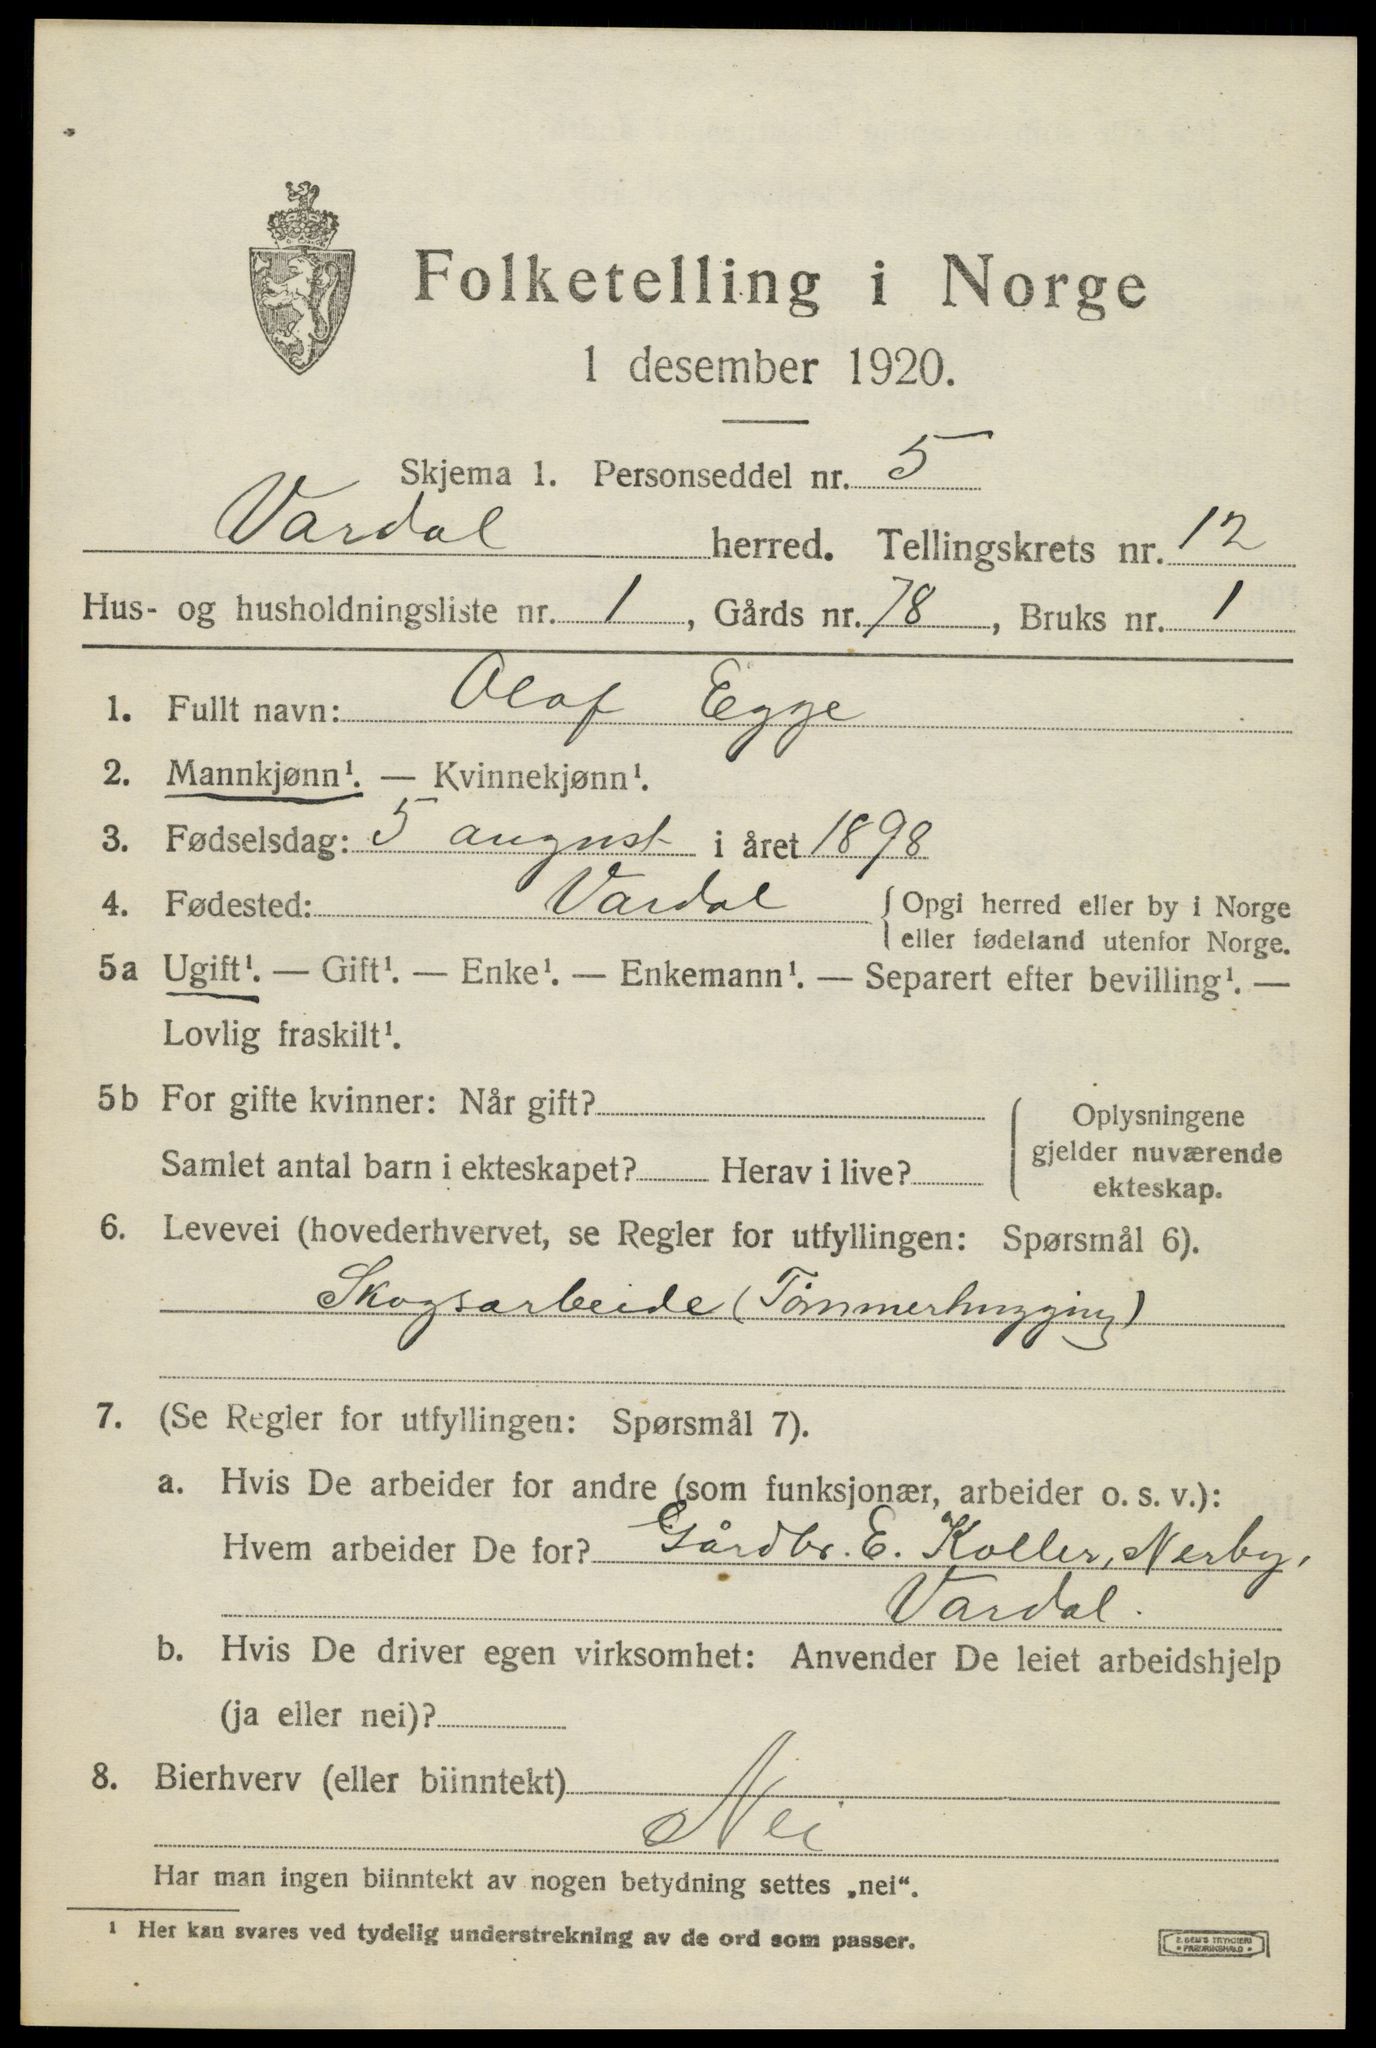 Folketelling i Norge
1 desember 1920.
Skjema 1. Personseddel nr. 5
Vardal herred. Tellingskrets nr. 12
Hus- og husholdningsliste nr. 1, Gårds nr. 78, Bruks nr. 1
1. Fullt navn: Olaf Egge
2. Mannkjønn¹. — Kvinnekjønn¹.
3. Fødselsdag: 5 august i året 1898
4. Fødested: Vardal { Opgi herred eller by i Norge
eller fødeland utenfor Norge.
5a Ugift¹. — Gift¹. — Enke¹. — Enkemann¹. — Separert efter bevilling¹. —
Lovlig fraskilt¹.
5b For gifte kvinner: Når gift?
Samlet antal barn i ekteskapet? Herav i live?
Oplysningene
gjelder nuværende
ekteskap.
6. Levevei (hovederhvervet, se Regler for utfyllingen: Spørsmål 6).
Skogsarbeide (Tømmerhugging)
7. (Se Regler for utfyllingen: Spørsmål 7).
a. Hvis De arbeider for andre (som funksjonær, arbeider o. s. v.):
Hvem arbeider De for? Gårdbr. E. Koller, Nerby,
Vardal.
b. Hvis De driver egen virksomhet: Anvender De leiet arbeidshjelp
(ja eller nei)?
8. Bierhverv (eller biinntekt)
Nei
Har man ingen biinntekt av nogen betydning settes „nei“.
¹ Her kan svares ved tydelig understrekning av de ord som passer.
E. SEM'S TRYKKERI
• FREDRIKSHALD •